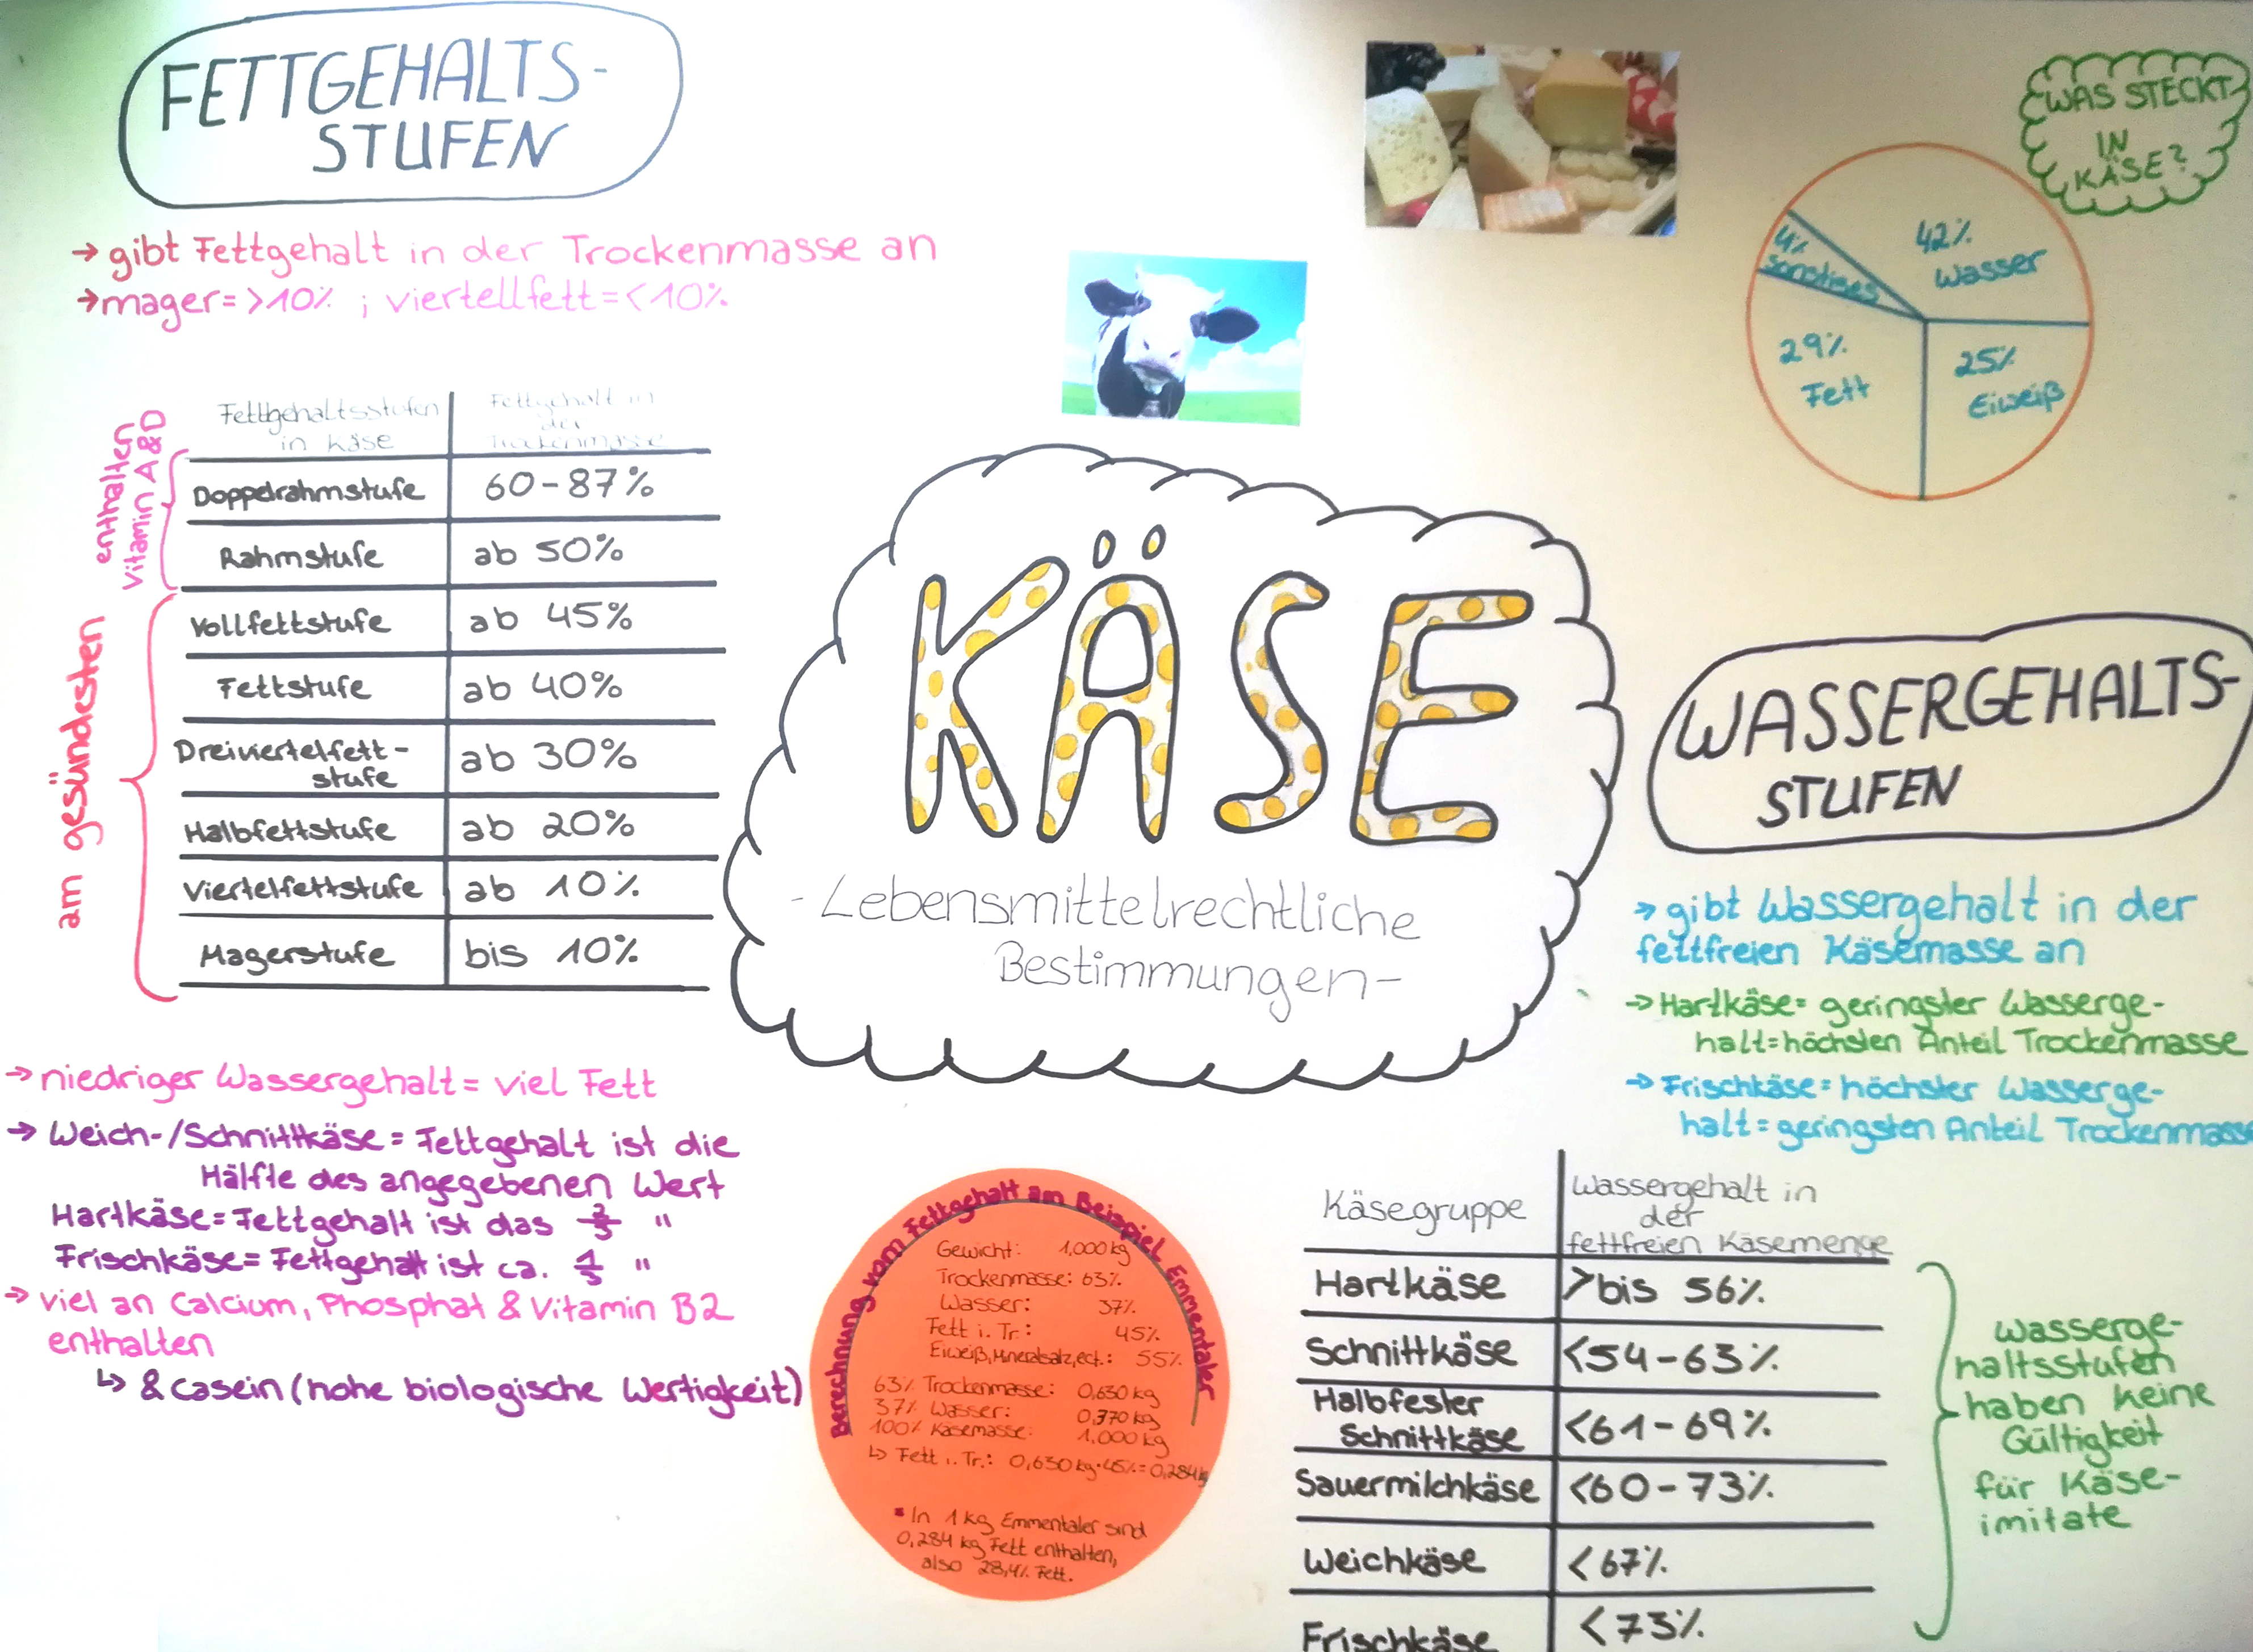 FETTGEHALTS-
STUFEN
→ gibt Fettgehalt in der Trockenmasse an
→ mager= >10% ; viertellfett= <10%
Fettgehaltsstufen
in Käse
Fettgehalt in
der
Trockenmasse
Doppelrahmstufe 60-87%
Rahmstufe ab 50%
Vollfettstufe ab 45%
Fettstufe ab 40%
Dreiviertelfett-
stufe ab 30%
Halbfettstufe ab 20%
Viertelfettstufe ab 10%
Magerstufe bis 10%
enthalten
Vitamin A & D
am gesündesten
→ niedriger Wassergehalt = viel Fett
→ Weich-/Schnittkäse = Fettgehalt ist die
Hälfte des angegebenen Wert
Hartkäse = Fettgehalt ist das 2/3 "
Frischkäse = Fettgehalt ist ca. 1/3 "
→ viel an Calcium, Phosphat & Vitamin B2
enthalten
↳ & casein (hohe biologische Wertigkeit)
KÄSE
- Lebensmittelrechtliche
Bestimmungen -
Berechnung vom Fettgehalt am Beispiel Emmentaler
Gewicht: 1,000 kg
Trockenmasse: 63%
Wasser: 37%
Fett i. Tr.: 45%
Eiweiß, Mineralsalz, ect.: 55%
63% Trockenmasse: 0,630 kg
37% Wasser: 0,370 kg
100% Käsemasse: 1,000 kg
↳ Fett i. Tr.: 0,630 kg · 45% = 0,284 kg
▪ In 1 kg Emmentaler sind
0,284 kg Fett enthalten,
also 28,4% Fett.
WAS STECKT
IN
KÄSE?
42%
Wasser
4%
sonstiges
29%
Fett
25%
Eiweiß
WASSERGEHALTS-
STUFEN
→ gibt Wassergehalt in der
fettfreien Käsemasse an
→ Hartkäse = geringster Wasserge-
halt = höchsten Anteil Trockenmasse
→ Frischkäse = höchster Wasserge-
halt = geringsten Anteil Trockenmasse
Käsegruppe
Wassergehalt in
der
fettfreien Käsemenge
Hartkäse >bis 56%
Schnittkäse <54-63%
Halbfester
Schnittkäse <61-69%
Sauermilchkäse <60-73%
Weichkäse <67%
Frischkäse <73%
Wasserge-
haltsstufen
haben keine
Gültigkeit
für Käse-
imitate